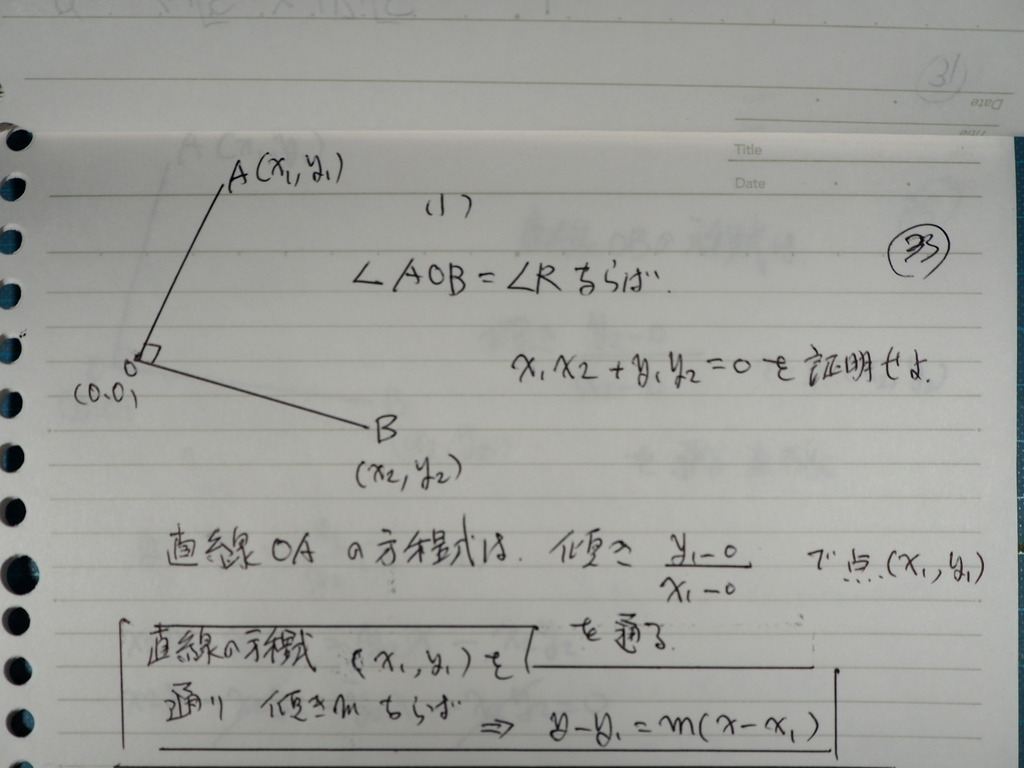 Title
Date
A(x₁, y₁)
(1)
33
∠AOB = ∠R ならば.
x₁x₂ + y₁y₂ = 0 を証明せよ.
O
(0.0)
B
(x₂, y₂)
直線OAの方程式は. 傾き (y₁-0)/(x₁-0) で点(x₁, y₁)
を通る.
直線の方程式 (x₁, y₁)を
通り 傾きmならば ⇒ y-y₁=m(x-x₁)